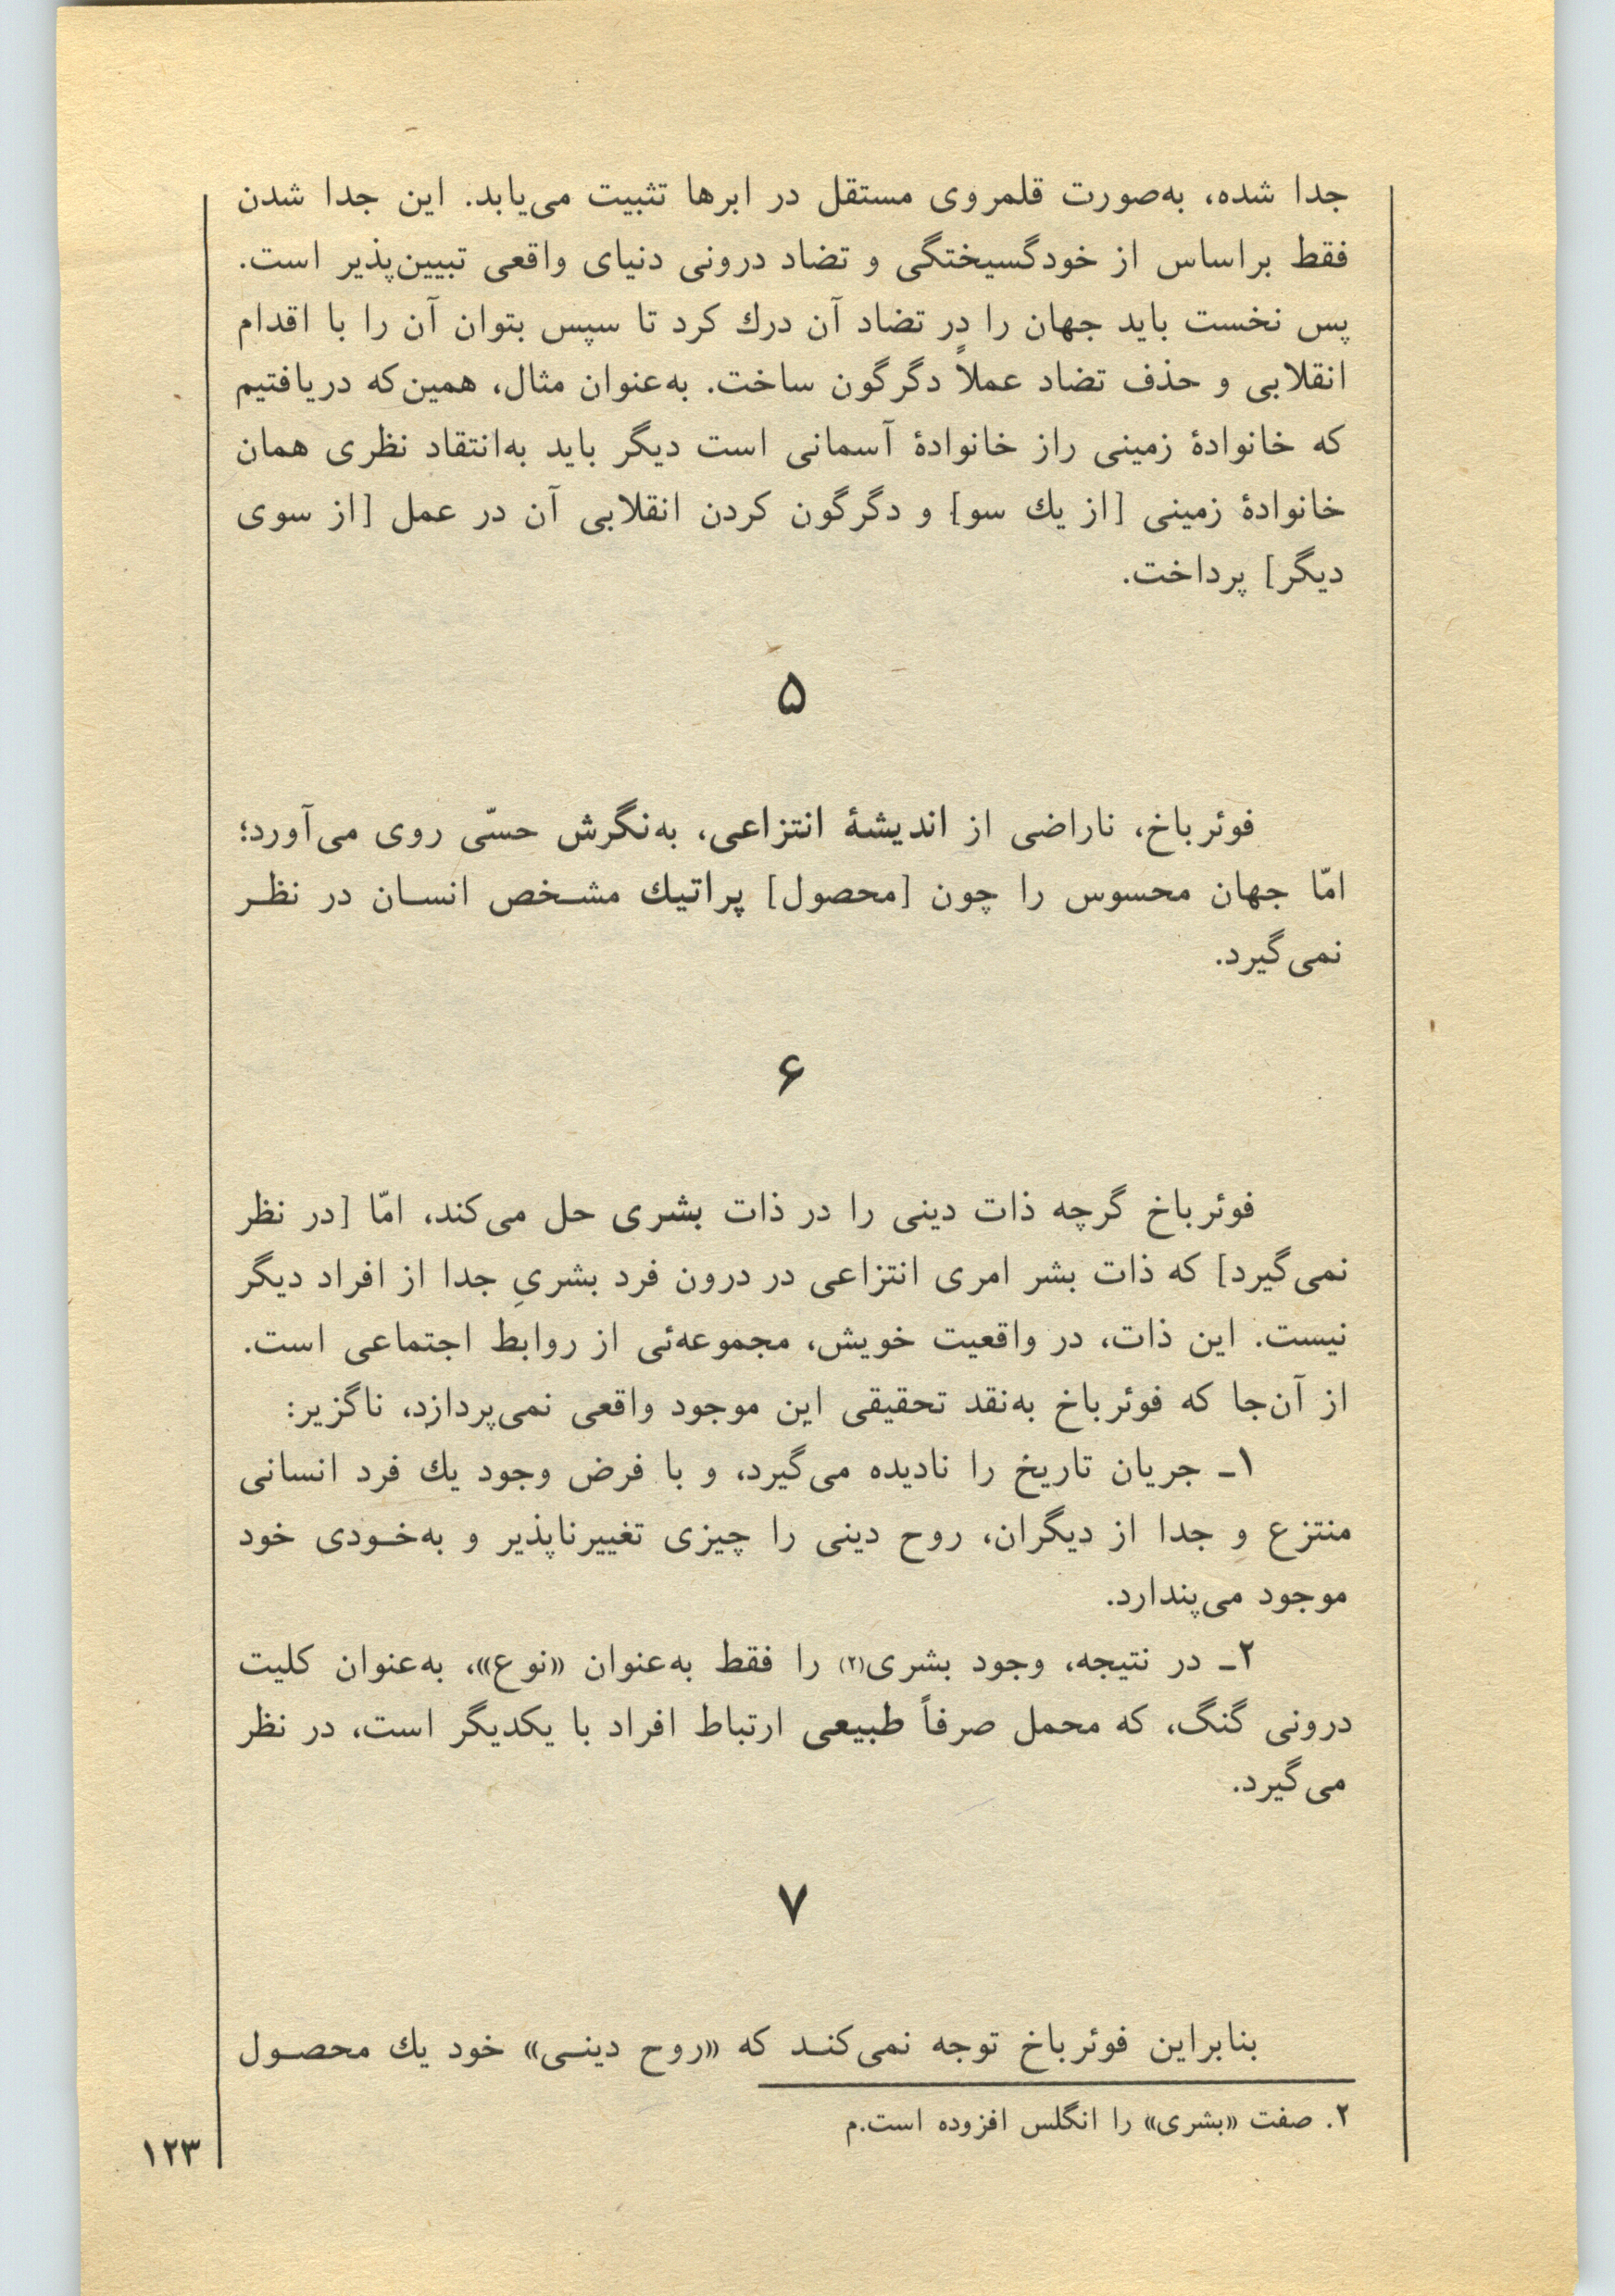 جدا شده، به‌صورت قلمروی مستقل در ابرها تثبیت می‌یابد. این جدا شدن
فقط براساس از خودگسیختگی و تضاد درونی دنیای واقعی تبیین‌پذیر است.
پس نخست باید جهان را در تضاد آن درك کرد تا سپس بتوان آن را با اقدام
انقلابی و حذف تضاد عملاً دگرگون ساخت. به‌عنوان مثال، همین‌که دریافتیم
که خانوادهٔ زمینی راز خانوادهٔ آسمانی است دیگر باید به‌انتقاد نظری همان
خانوادهٔ زمینی [از یك سو] و دگرگون کردن انقلابی آن در عمل [از سوی
دیگر] پرداخت.
۵
فوئرباخ، ناراضی از اندیشهٔ انتزاعی، به‌نگرش حسّی روی می‌آورد؛
امّا جهان محسوس را چون [محصول] پراتیك مشـخص انسـان در نظـر
نمی‌گیرد.
۶
فوئرباخ گرچه ذات دینی را در ذات بشری حل می‌کند، امّا [در نظر
نمی‌گیرد] که ذات بشر امری انتزاعی در درون فرد بشریِ جدا از افراد دیگر
نیست. این ذات، در واقعیت خویش، مجموعه‌ئی از روابط اجتماعی است.
از آن‌جا که فوئرباخ به‌نقد تحقیقی این موجود واقعی نمی‌پردازد، ناگزیر:
۱ـ جریان تاریخ را نادیده می‌گیرد، و با فرض وجود یك فرد انسانی
منتزع و جدا از دیگران، روح دینی را چیزی تغییرناپذیر و به‌خـودی خود
موجود می‌پندارد.
۲ـ در نتیجه، وجود بشری(۲) را فقط به‌عنوان «نوع»، به‌عنوان کلیت
درونی گنگ، که محمل صرفاً طبیعی ارتباط افراد با یکدیگر است، در نظر
می‌گیرد.
۷
بنابراین فوئرباخ توجه نمی‌کنـد که «روح دینـی» خود یك محصـول
۲. صفت «بشری» را انگلس افزوده است.م
۱۲۳